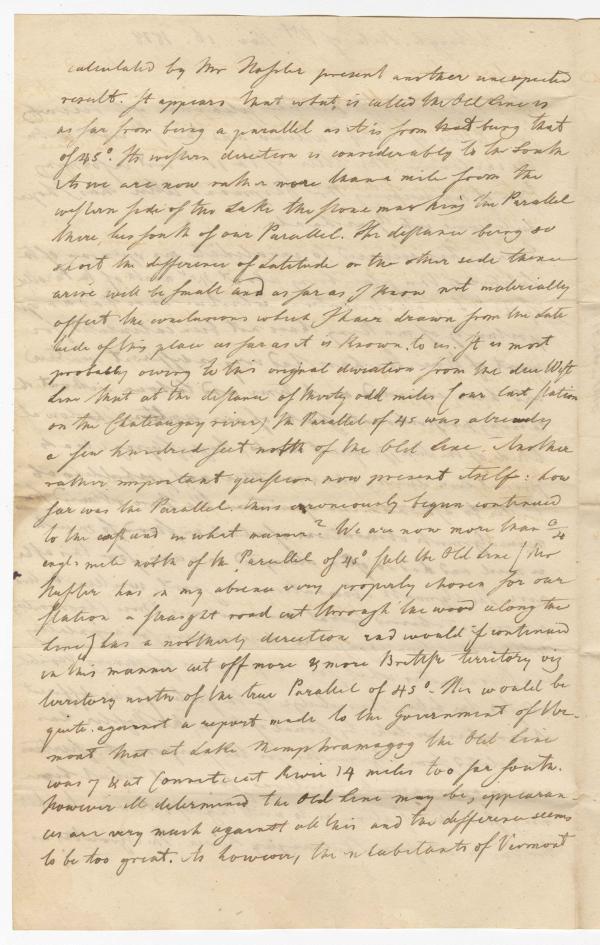 calculated by Mr Hassler present another unexpected
result. It appears that what is called the Old Line is
as far from being a parallel as it is from being that
of 45°. Its western direction is considerably to the South
As we are now rather more than a mile from the
western side of the Lake the stone marking the Parallel
there, lies south of our Parallel. The distance being so
short the difference of Latitude on the other side thence
arise will be small and as far as I know not materially
affect the conclusions which I have drawn from the Lake
side of this place as far as it is known to us. It is most
probably owing to this original deviation from the due West
Line that at the distance of thirty odd miles (our last station
on the Chateaugay river) the Parallel of 45 was already
a few hundred feet north of the Old Line. Another
rather important question now present itself: how
far was the Parallel thus erroneously begun continued
to the east and in what manner? We are now more than
engl: mile north of the Parallel of 45° still the Old Line (Mr
Hassler has in my absence very properly chosen for our
station a straight road cut through the wood along the
line) has a northerly direction and would if continued
in this manner cut off more & more British territory viz
territory north of the true Parallel of 45°. This would be
quite against a report made to the Government of Ver-
mont that at Lake Memphramagog the Old Line
was 7 & at Connecticut River 14 miles too far South.
However ill determined the Old Line may be, appearan-
ces are very much against all this and the difference seems
to be too great. As however, the inhabitants of Vermont